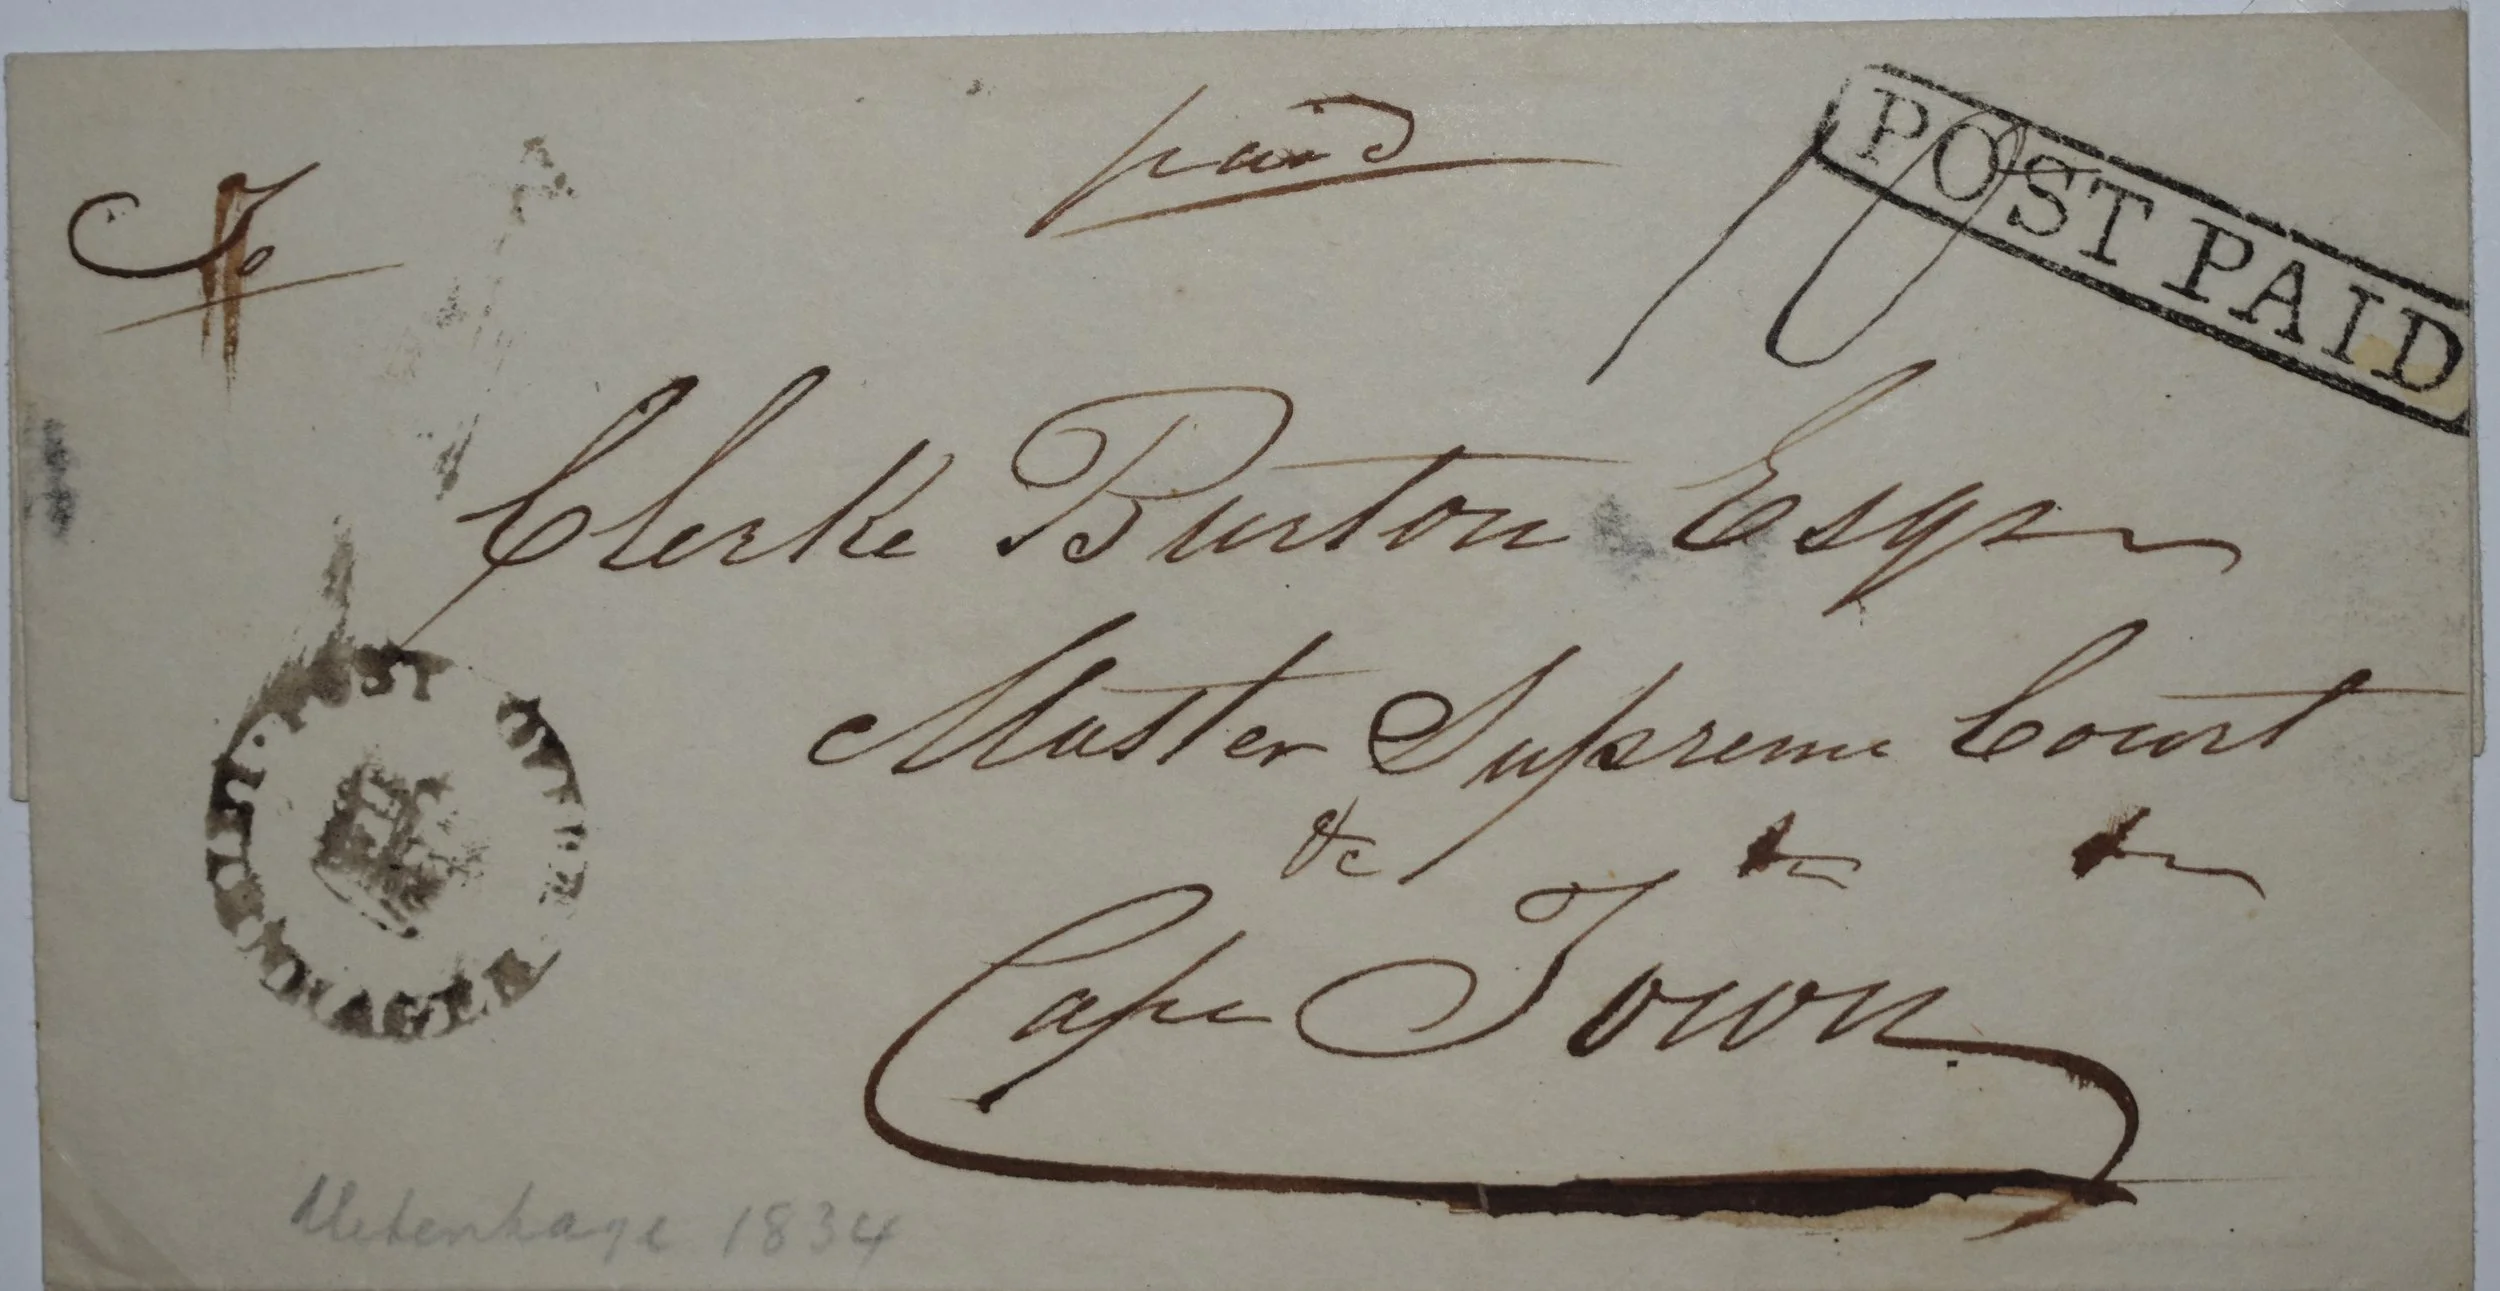 paid
POST PAID
10
Clerke Burton Esqr
Master Supreme Court
&c &c &c
Cape Town
POST OFFICE
UITENHAGE
Uitenhage 1834